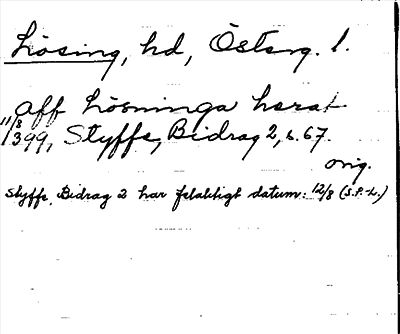 Lösing, hd, Österg. l.
aff Lösninga herat
11/8 1399, Styffe, Bidrag 2, s. 67.
orig.
Styffe, Bidrag 2 har felaktigt datum: 12/8 (S.P.-L.)